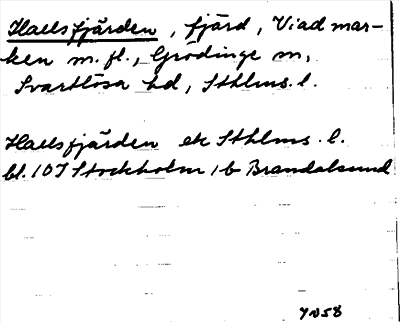 Hallsfjärden, fjärd, Viad mar-
ken m.fl., Grödinge sn,
Svartlösa hd, Sthlms. l.
Hallsfjärden ek Sthlms. l.
bl. 10I Stockholm, 1b Brandalsund